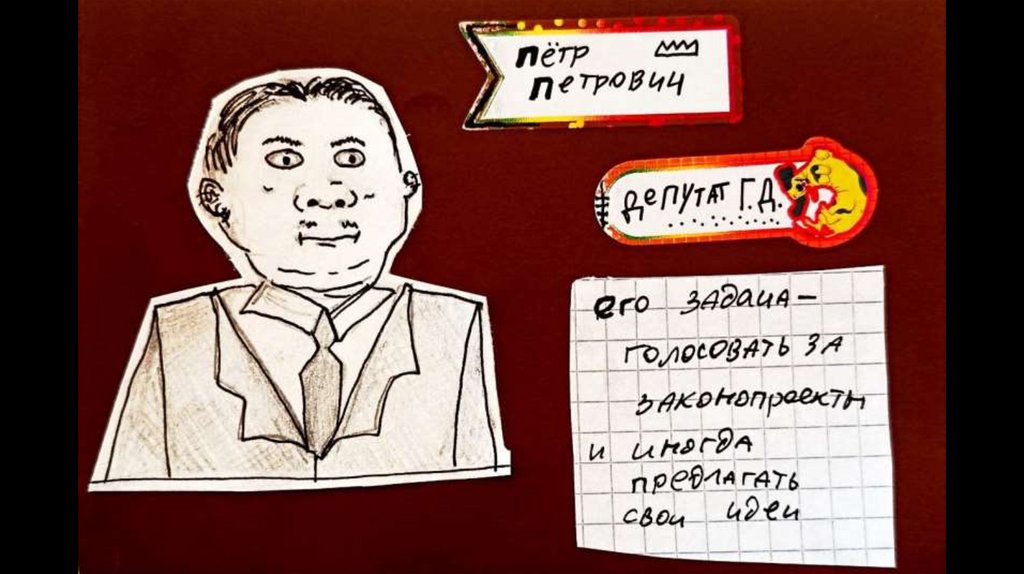 Пётр
Петрович
Депутат Г.Д.
его задача –
голосовать за
законопроекты
и иногда
предлагать
свои идеи